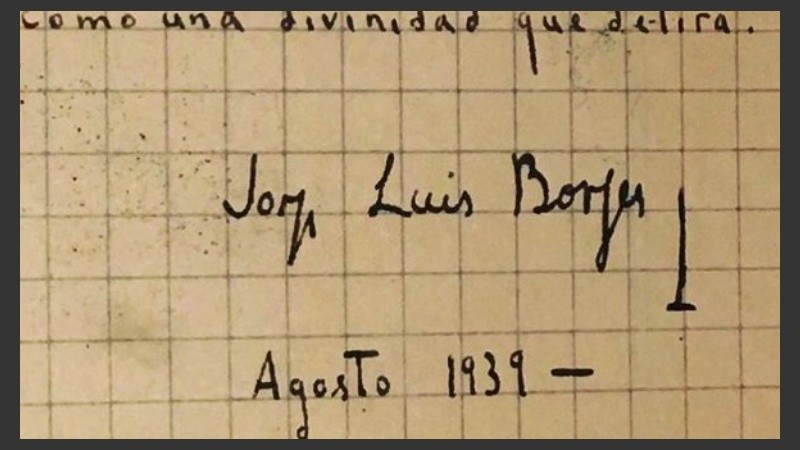 como una divinidad que delira.
Jorge Luis Borges
Agosto 1939 —